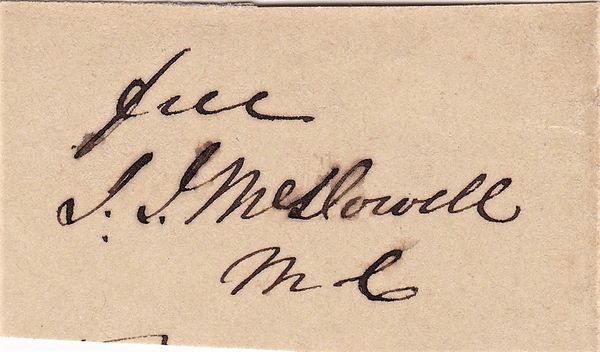 free
J. J. McDowell
M C